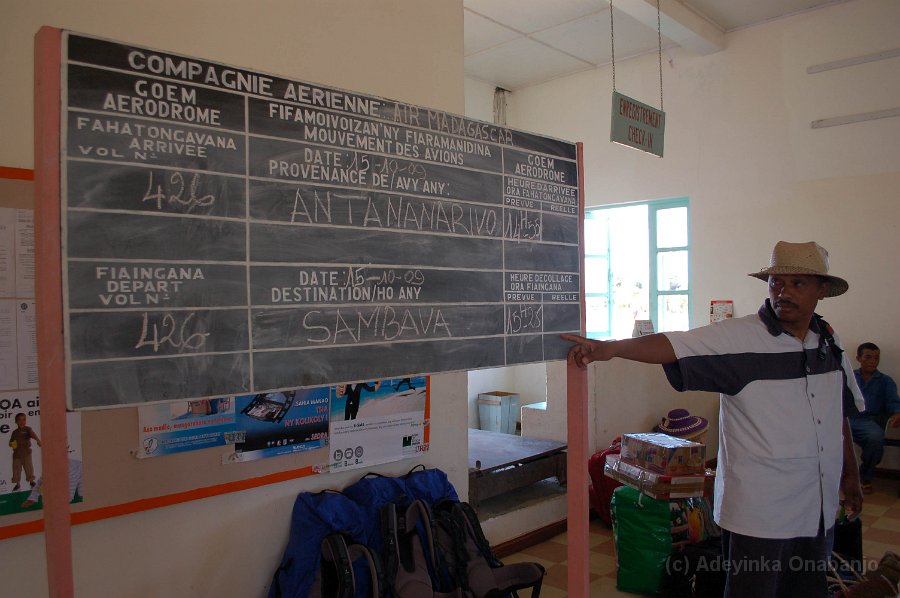 COMPAGNIE AERIENNE: AIR MADAGASCAR
GOEM
AERODROME
FIFAMOIVOIZAN'NY FIARAMANIDINA
MOUVEMENT DES AVIONS
GOEM
AERODROME
FAHATONGAVANA
ARRIVÉE
VOL N°
DATE: 15-10-09
PROVENANCE DE/AVY ANY:
HEURE D'ARRIVÉE
ORA FAHATONGAVANA
PREVUE REELLE
426
ANTANANARIVO
FIAINGANA
DEPART
VOL N°
DATE: 15-10-09
DESTINATION/HO ANY
HEURE DECOLLAGE
ORA FIAINGANA
PREVUE REELLE
426
SAMBAVA
ENREGISTREMENT
CHECK-IN
NY KOLIKOLY !
(c) Adeyinka Onabanjo